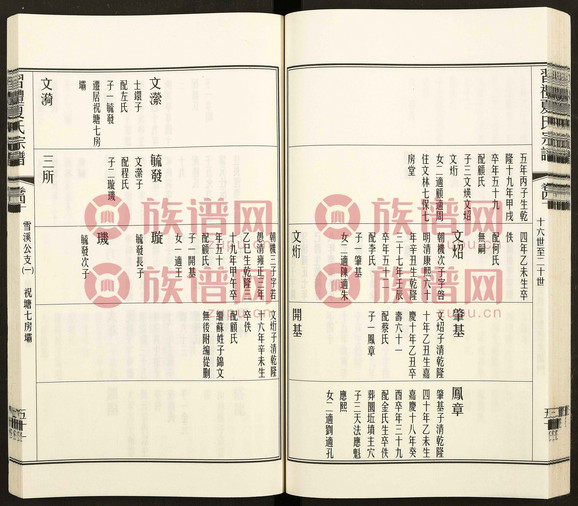 習禮夏氏宗譜
卷四
十六世至二十世
五年丙子生乾
隆十九年甲戌
卒年五十九
配顧氏
子三文煐文炤
文炘
女二適顧適周
住文林七保七
房堂
四年乙未生卒
佚
配何氏
無嗣
文炤
朝機次子字咎
明清康熙六十
年辛丑生乾隆
三十七年壬辰
卒年五十二
配李氏
子一肇基
女二適陳適朱
文炘
肇基
文炤子清乾隆
十年乙丑生嘉
慶十年乙丑卒
壽六十一
配蔡氏
子一鳳章
開基
鳳章
肇基子清乾隆
四十年乙未生
嘉慶十八年癸
酉卒年三十九
配金氏生卒佚
葬閣近墳主穴
子三天法應魁
應熙
女二適劉適孔
朝機三子字若
愚清雍正三年
乙巳生乾隆三
十九年甲午卒
年五十
配顧氏
子一開基
女一適王
文炘子清乾隆
十六年辛未生
卒佚
配顧氏
繼蘇姓子錦文
無後附編從刪
文瀠
士鐶子
配左氏
子一毓發
遷居祝塘七房
壩
毓發
文瀠子
配程氏
子二璇璣
璇
毓發長子
璣
毓發次子
文漪
三所
習禮夏氏宗譜
卷四
雪溪公支(一)
祝塘七房壩
族谱网
zupu.cn
族谱网
zupu.cn
族谱网
zupu.cn
族谱网
zupu.cn